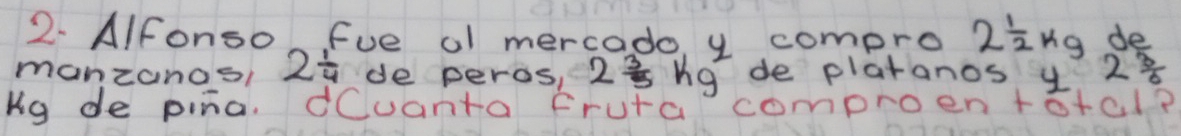 2. Alfonso fue al mercado y compro 2 1/2 kg de
manzanas, 2 1/4 de peras, 2 3/5 kg de platanos y 2 3/8
kg de piña. ¿Cuanta fruta compro en total?